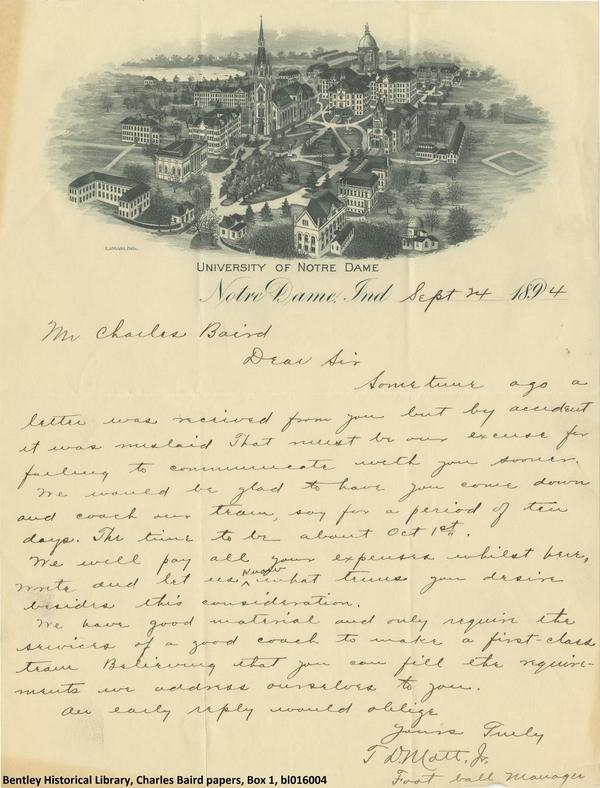 LaMoint Delin.
UNIVERSITY OF NOTRE DAME
Notre Dame, Ind Sept 24 1894
Mr Charles Baird
Dear Sir
Sometime ago a
letter was received from you but by accident
it was mislaid That must be our excuse for
failing to communicate with you sooner.
We would be glad to have you come down
and coach our team, say for a period of ten
days. The time to be about Oct 1st.
We will pay all your expenses whilst here,
write and let us know what terms you desire
besides this consideration.
We have good material and only require the
services of a good coach to make a first-class
team Believing that you can fill the require-
ments we address ourselves to you.
An early reply would oblige
Yours Truly
T D Mott, Jr.
Foot ball Manager
Bentley Historical Library, Charles Baird papers, Box 1, bl016004